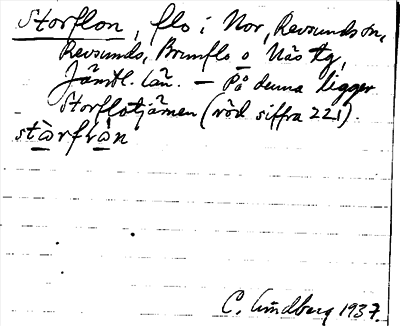 Storflon, flo i Nor, Revsunds sn,
Revsunds, Brunflo o Näs tg,
Jämtl. län. – På denna ligger
Storflotjärnen (röd siffra 221).
stòrfròn
C. Lindberg 1937.